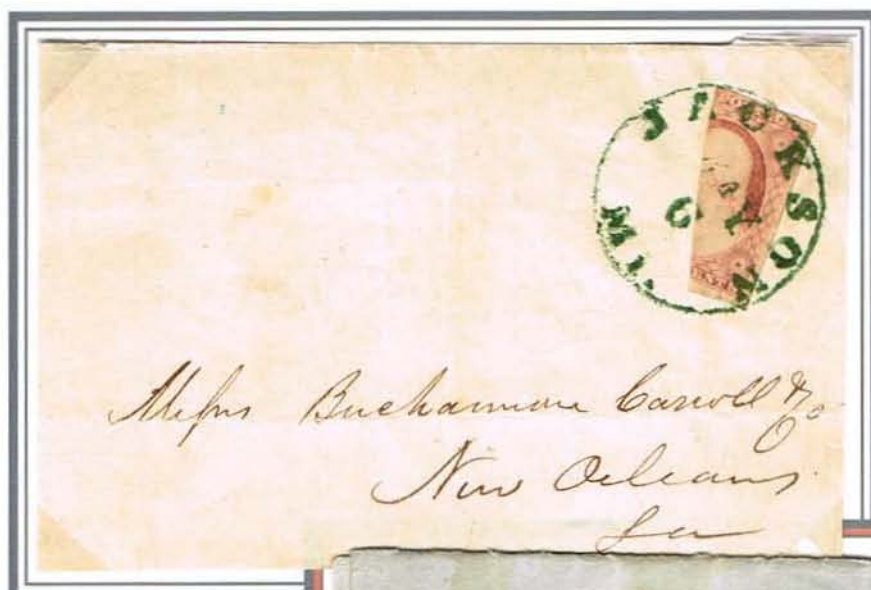 JACKSON
MI
Messrs Buchannon Carroll & Co
New Orleans
La